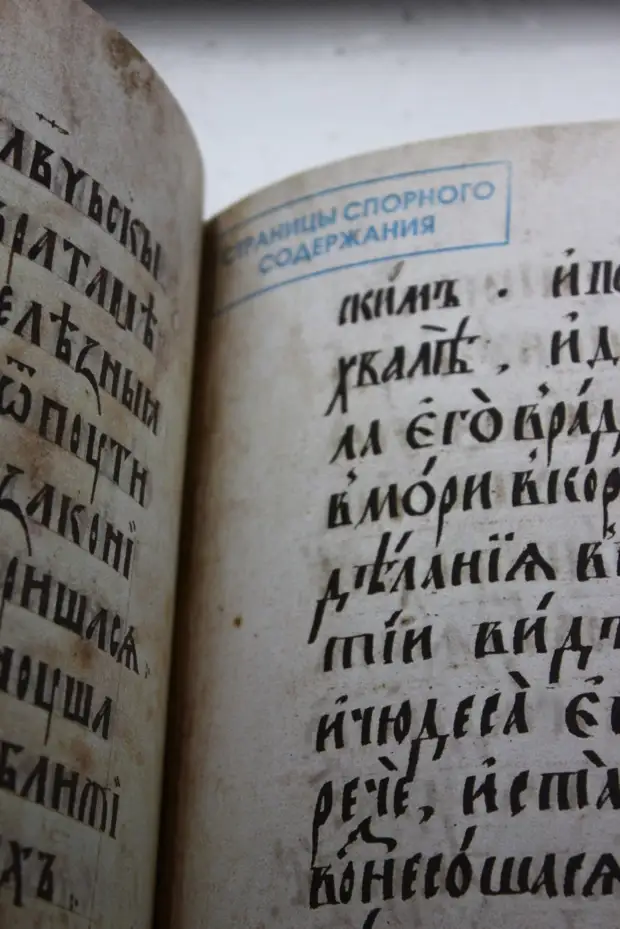 лвꙋьскъі
браташѣ
елѣзныи
ѿ поꙋти
законі
ришасѧ.
ноꙋша
блимі
хъ.
СТРАНИЦЫ СПОРНОГО
СОДЕРЖАНИЯ
ски́мъ . и҆по
хвалѣ , и҆д
ла є҆го̀ в҆ра́д
в҆мо́ри в҆кор
дѣ́ланїѧ в҆
тїи ви́дѣ
и҆чюдеса̀ є҆
речѐ, и҆ста̀
во҆несо́шасѧ